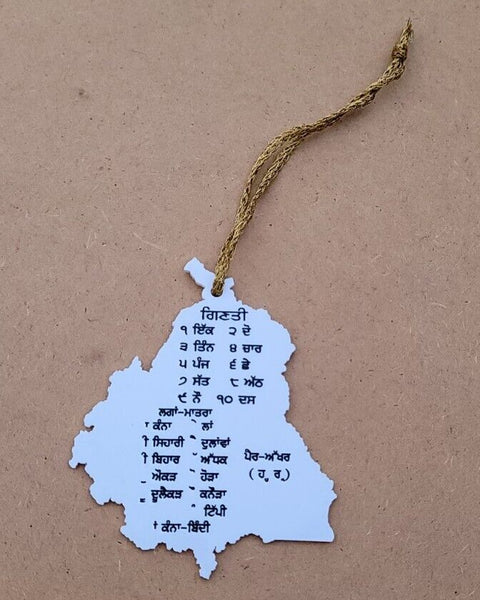 ਗਿਣਤੀ
੧ ਇੱਕ ੨ ਦੋ
੩ ਤਿੰਨ ੪ ਚਾਰ
੫ ਪੰਜ ੬ ਛੇ
੭ ਸੱਤ ੮ ਅੱਠ
੯ ਨੌ ੧੦ ਦਸ
ਲਗਾਂ-ਮਾਤਰਾ
ਾ ਕੰਨਾ ੇ ਲਾਂ
ਿ ਸਿਹਾਰੀ ੈ ਦੁਲਾਂਵਾਂ
ੀ ਬਿਹਾਰ ੱ ਅੱਧਕ ਪੈਰ-ਅੱਖਰ
ੁ ਔਕੜ ੋ ਹੋੜਾ ( ੍ਹ ੍ਰ )
ੂ ਦੂਲੈਕੜ ੌ ਕਨੌੜਾ
ੰ ਟਿੱਪੀ
ਾਂ ਕੰਨਾ-ਬਿੰਦੀ